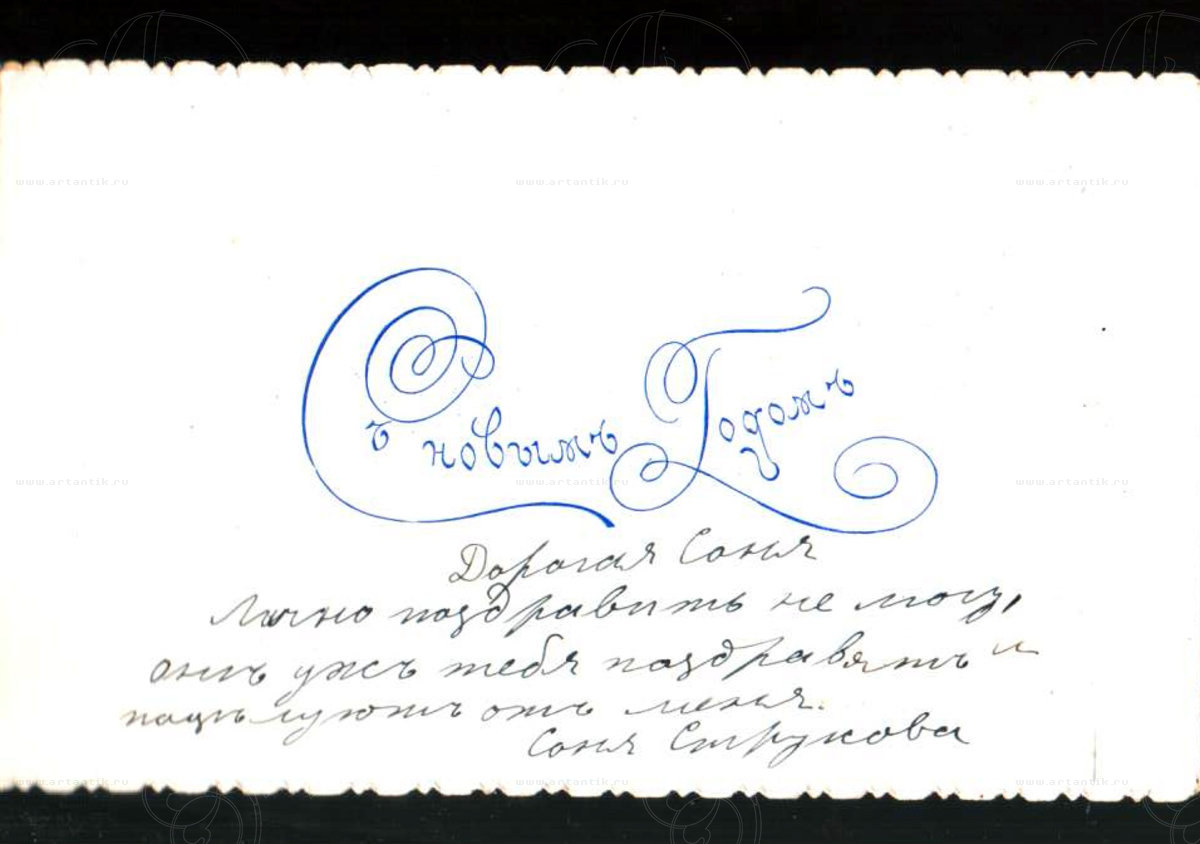 Съ новымъ Годомъ
Дорогая Соня
Лично поздравить не могу,
онъ ужъ тебя поздравятъ и
поцѣлуютъ отъ меня.
Соня Струкова
www.artantik.ru www.artantik.ru www.artantik.ru
www.artantik.ru www.artantik.ru www.artantik.ru
www.artantik.ru www.artantik.ru www.artantik.ru